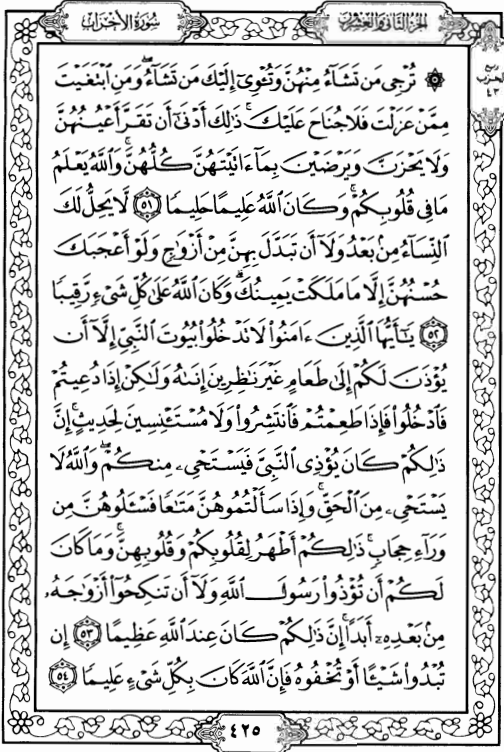 سُورَةُ الأَحْزَابِ
الجُزْءُ الثَّانِي وَالعِشْرُونَ
رُبْع
الحِزْب
٤٣
۞ تُرْجِى مَن تَشَآءُ مِنْهُنَّ وَتُـْٔوِىٓ إِلَيْكَ مَن تَشَآءُ ۖ وَمَنِ ٱبْتَغَيْتَ
مِمَّنْ عَزَلْتَ فَلَا جُنَاحَ عَلَيْكَ ۚ ذَٰلِكَ أَدْنَىٰٓ أَن تَقَرَّ أَعْيُنُهُنَّ
وَلَا يَحْزَنَّ وَيَرْضَيْنَ بِمَآ ءَاتَيْتَهُنَّ كُلُّهُنَّ ۚ وَٱللَّهُ يَعْلَمُ
مَا فِى قُلُوبِكُمْ ۚ وَكَانَ ٱللَّهُ عَلِيمًا حَلِيمًا ٥١ لَّا يَحِلُّ لَكَ
ٱلنِّسَآءُ مِنۢ بَعْدُ وَلَآ أَن تَبَدَّلَ بِهِنَّ مِنْ أَزْوَٰجٍ وَلَوْ أَعْجَبَكَ
حُسْنُهُنَّ إِلَّا مَا مَلَكَتْ يَمِينُكَ ۗ وَكَانَ ٱللَّهُ عَلَىٰ كُلِّ شَىْءٍ رَّقِيبًا
٥٢ يَـٰٓأَيُّهَا ٱلَّذِينَ ءَامَنُوا۟ لَا تَدْخُلُوا۟ بُيُوتَ ٱلنَّبِىِّ إِلَّآ أَن
يُؤْذَنَ لَكُمْ إِلَىٰ طَعَامٍ غَيْرَ نَـٰظِرِينَ إِنَىٰهُ وَلَـٰكِنْ إِذَا دُعِيتُمْ
فَٱدْخُلُوا۟ فَإِذَا طَعِمْتُمْ فَٱنتَشِرُوا۟ وَلَا مُسْتَـْٔنِسِينَ لِحَدِيثٍ ۚ إِنَّ
ذَٰلِكُمْ كَانَ يُؤْذِى ٱلنَّبِىَّ فَيَسْتَحْىِۦ مِنكُمْ ۖ وَٱللَّهُ لَا
يَسْتَحْىِۦ مِنَ ٱلْحَقِّ ۚ وَإِذَا سَأَلْتُمُوهُنَّ مَتَـٰعًا فَسْـَٔلُوهُنَّ مِن
وَرَآءِ حِجَابٍ ۚ ذَٰلِكُمْ أَطْهَرُ لِقُلُوبِكُمْ وَقُلُوبِهِنَّ ۚ وَمَا كَانَ
لَكُمْ أَن تُؤْذُوا۟ رَسُولَ ٱللَّهِ وَلَآ أَن تَنكِحُوٓا۟ أَزْوَٰجَهُۥ
مِنۢ بَعْدِهِۦٓ أَبَدًا ۚ إِنَّ ذَٰلِكُمْ كَانَ عِندَ ٱللَّهِ عَظِيمًا ٥٣ إِن
تُبْدُوا۟ شَيْـًٔا أَوْ تُخْفُوهُ فَإِنَّ ٱللَّهَ كَانَ بِكُلِّ شَىْءٍ عَلِيمًا ٥٤
٤٢٥